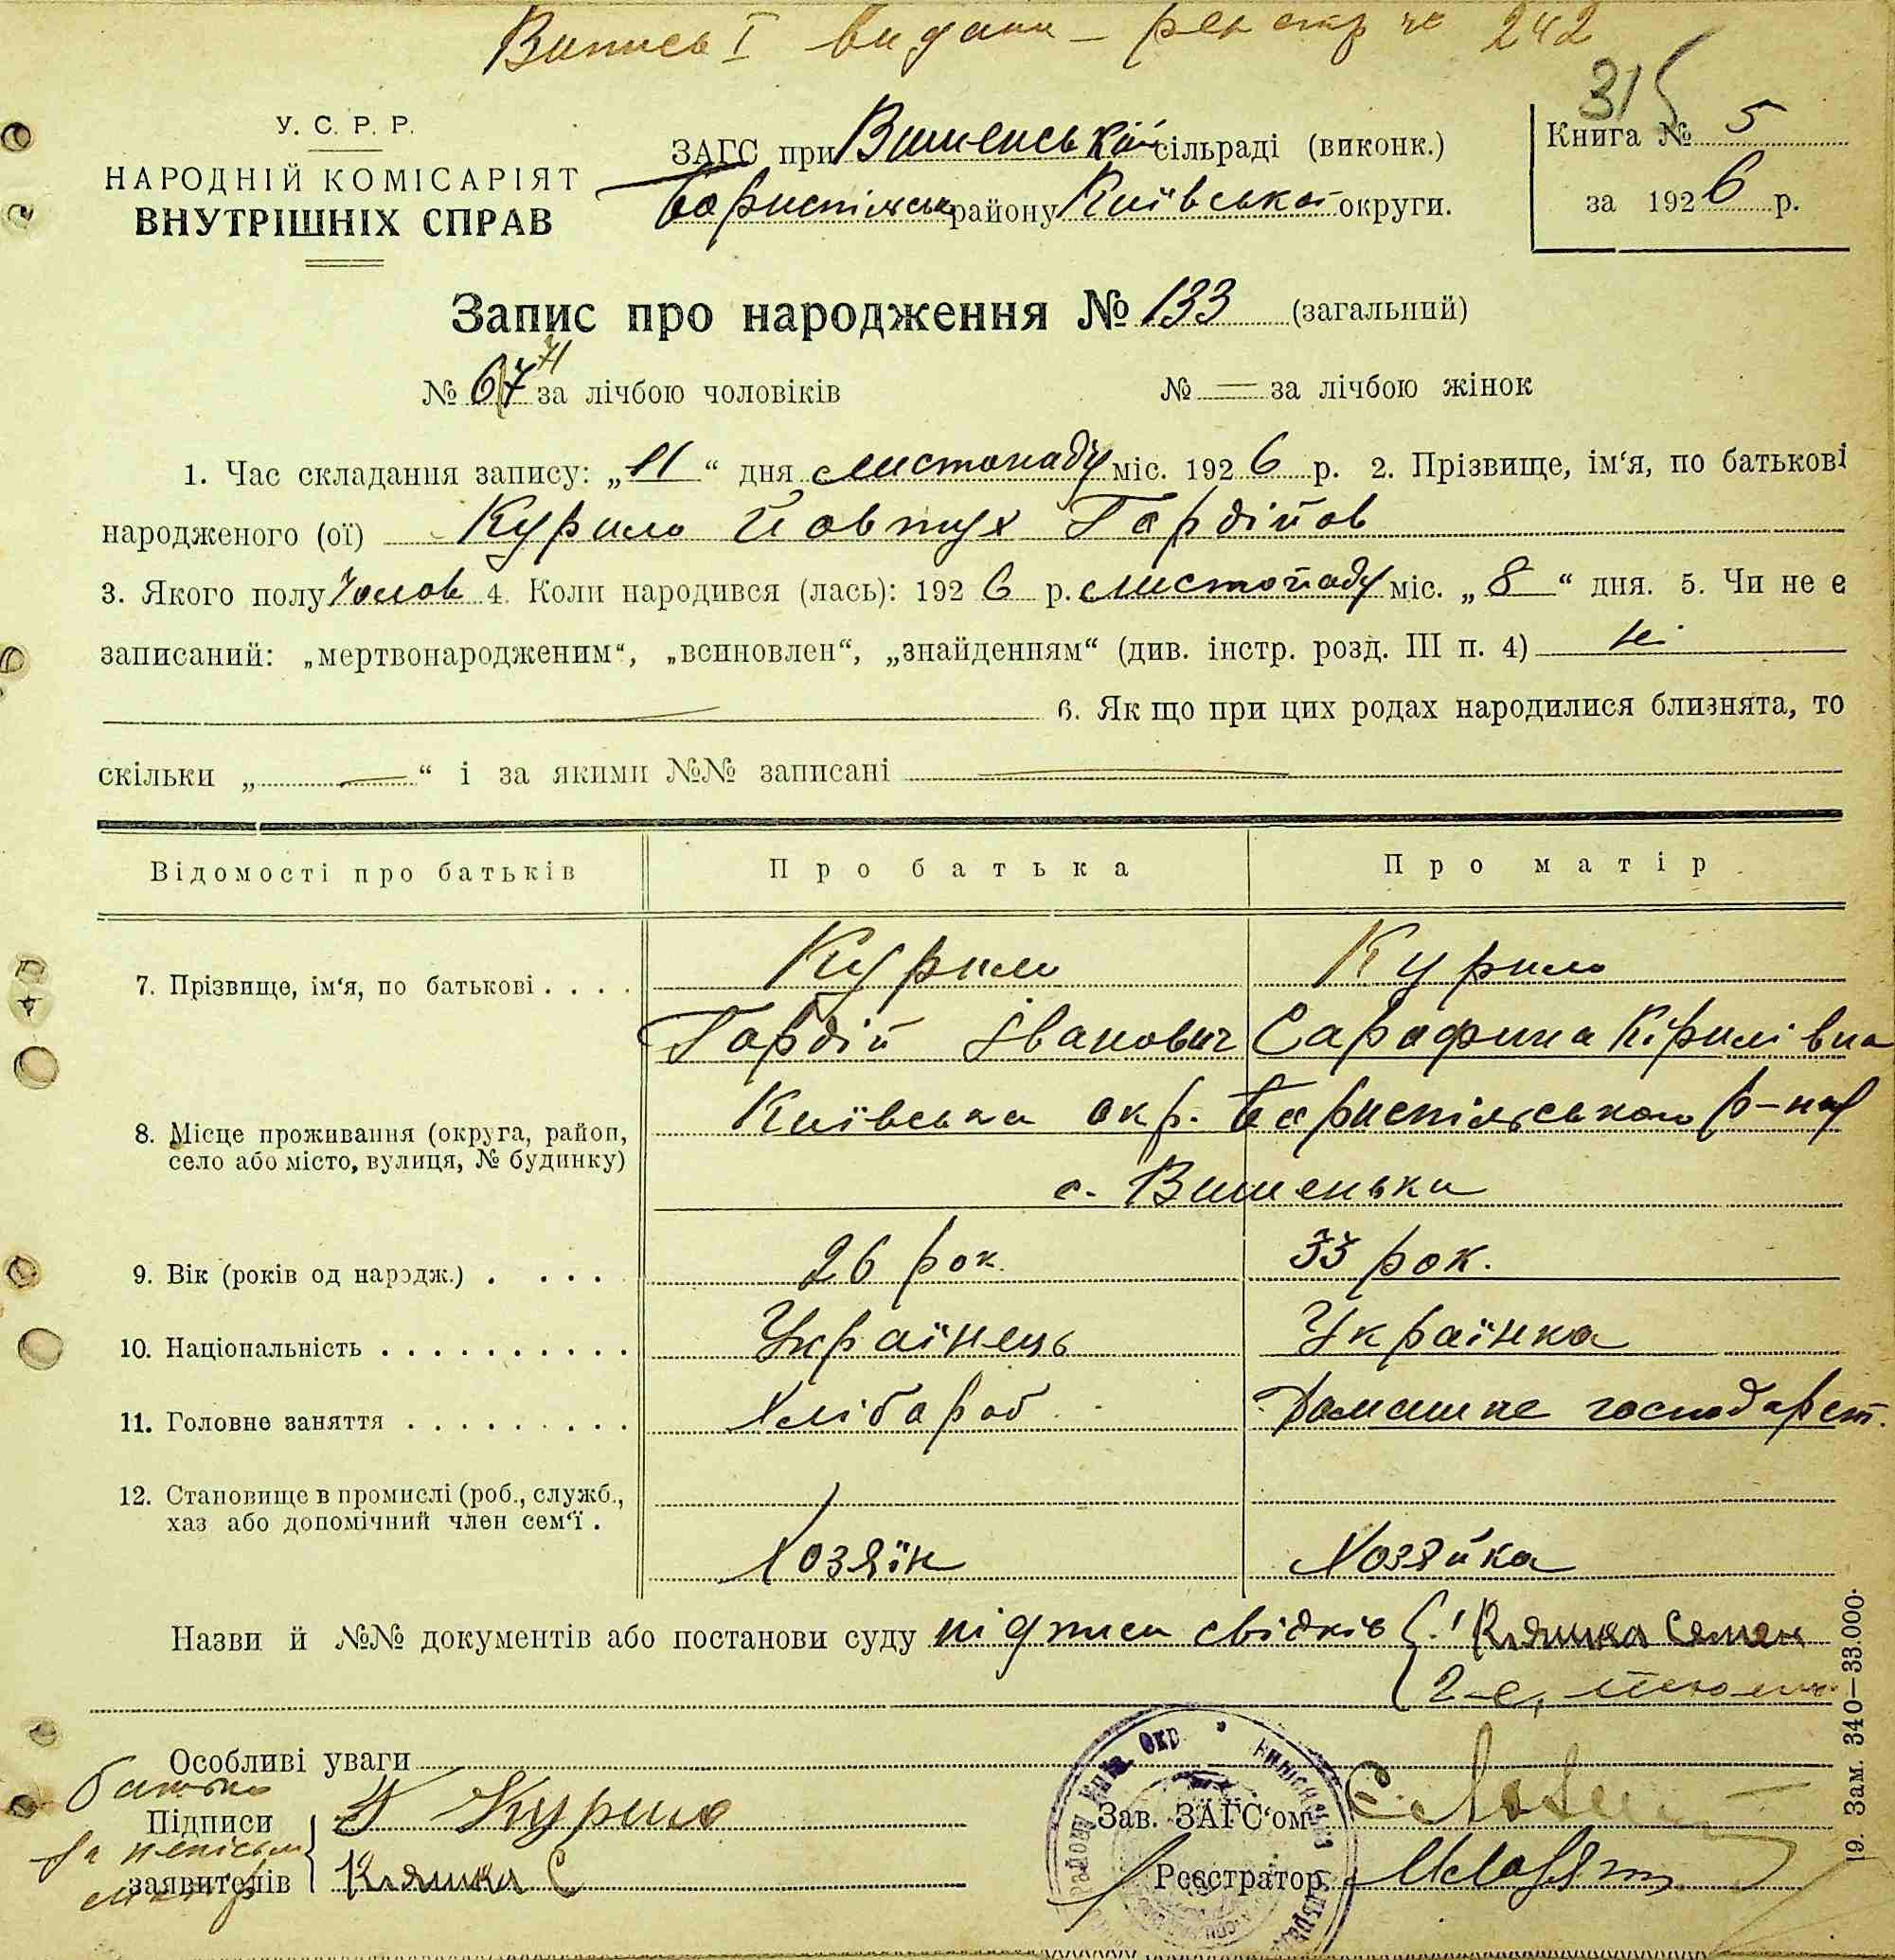 Випись I видана – реєстр № 242
315
У. С. Р. Р.
НАРОДНІЙ КОМІСАРІЯТ
ВНУТРІШНІХ СПРАВ
ЗАГС при Вишенській сільраді (виконк.)
Бориспільськ району Київської округи.
Книга № 5
за 1926 р.
Запис про народження № 133 (загальний)
71
№ 67 за лічбою чоловіків № — за лічбою жінок
1. Час складання запису: „11“ дня листопаду міс. 1926 р. 2. Прізвище, ім‘я, по батькові
народженого (ої) Курило Йовтух Гордійов
3. Якого полу Чолов 4. Коли народився (лась): 1926 р. листопаду міс. „8“ дня. 5. Чи не є
записаний: „мертвонародженим“, „всиновлен“, „знайденням“ (див. інстр. розд. III п. 4) ні
6. Як що при цих родах народилися близнята, то
скільки „ — “ і за якими №№ записані —
Відомості про батьків Про батька Про матір
7. Прізвище, ім‘я, по батькові . . . . Курило Курило
Гордій Іванович Сарафина Кірилівна
8. Місце проживання (округа, район, Київська окр. Бориспільського р-ну
село або місто, вулиця, № будинку)
с. Вишеньки
9. Вік (років од народж.) . . . . 26 рок. 33 рок.
10. Національність . . . . . . . . . . . Українець Українка
11. Головне заняття . . . . . . . . . Хлібороб Домашне господарст.
12. Становище в промислі (роб., служб.,
хаз або допомічний член сем‘ї .
Хозяїн Хозяйка
Назви й №№ документів або постанови суду підписи свідків 1 Кляшка Семен
2-е,
Особливі уваги
батько
Підписи Курило
за неписьм
заявителів Кляшка С
Зав. ЗАГС‘ом
Реєстратор
19. Зам. 340—33.000.